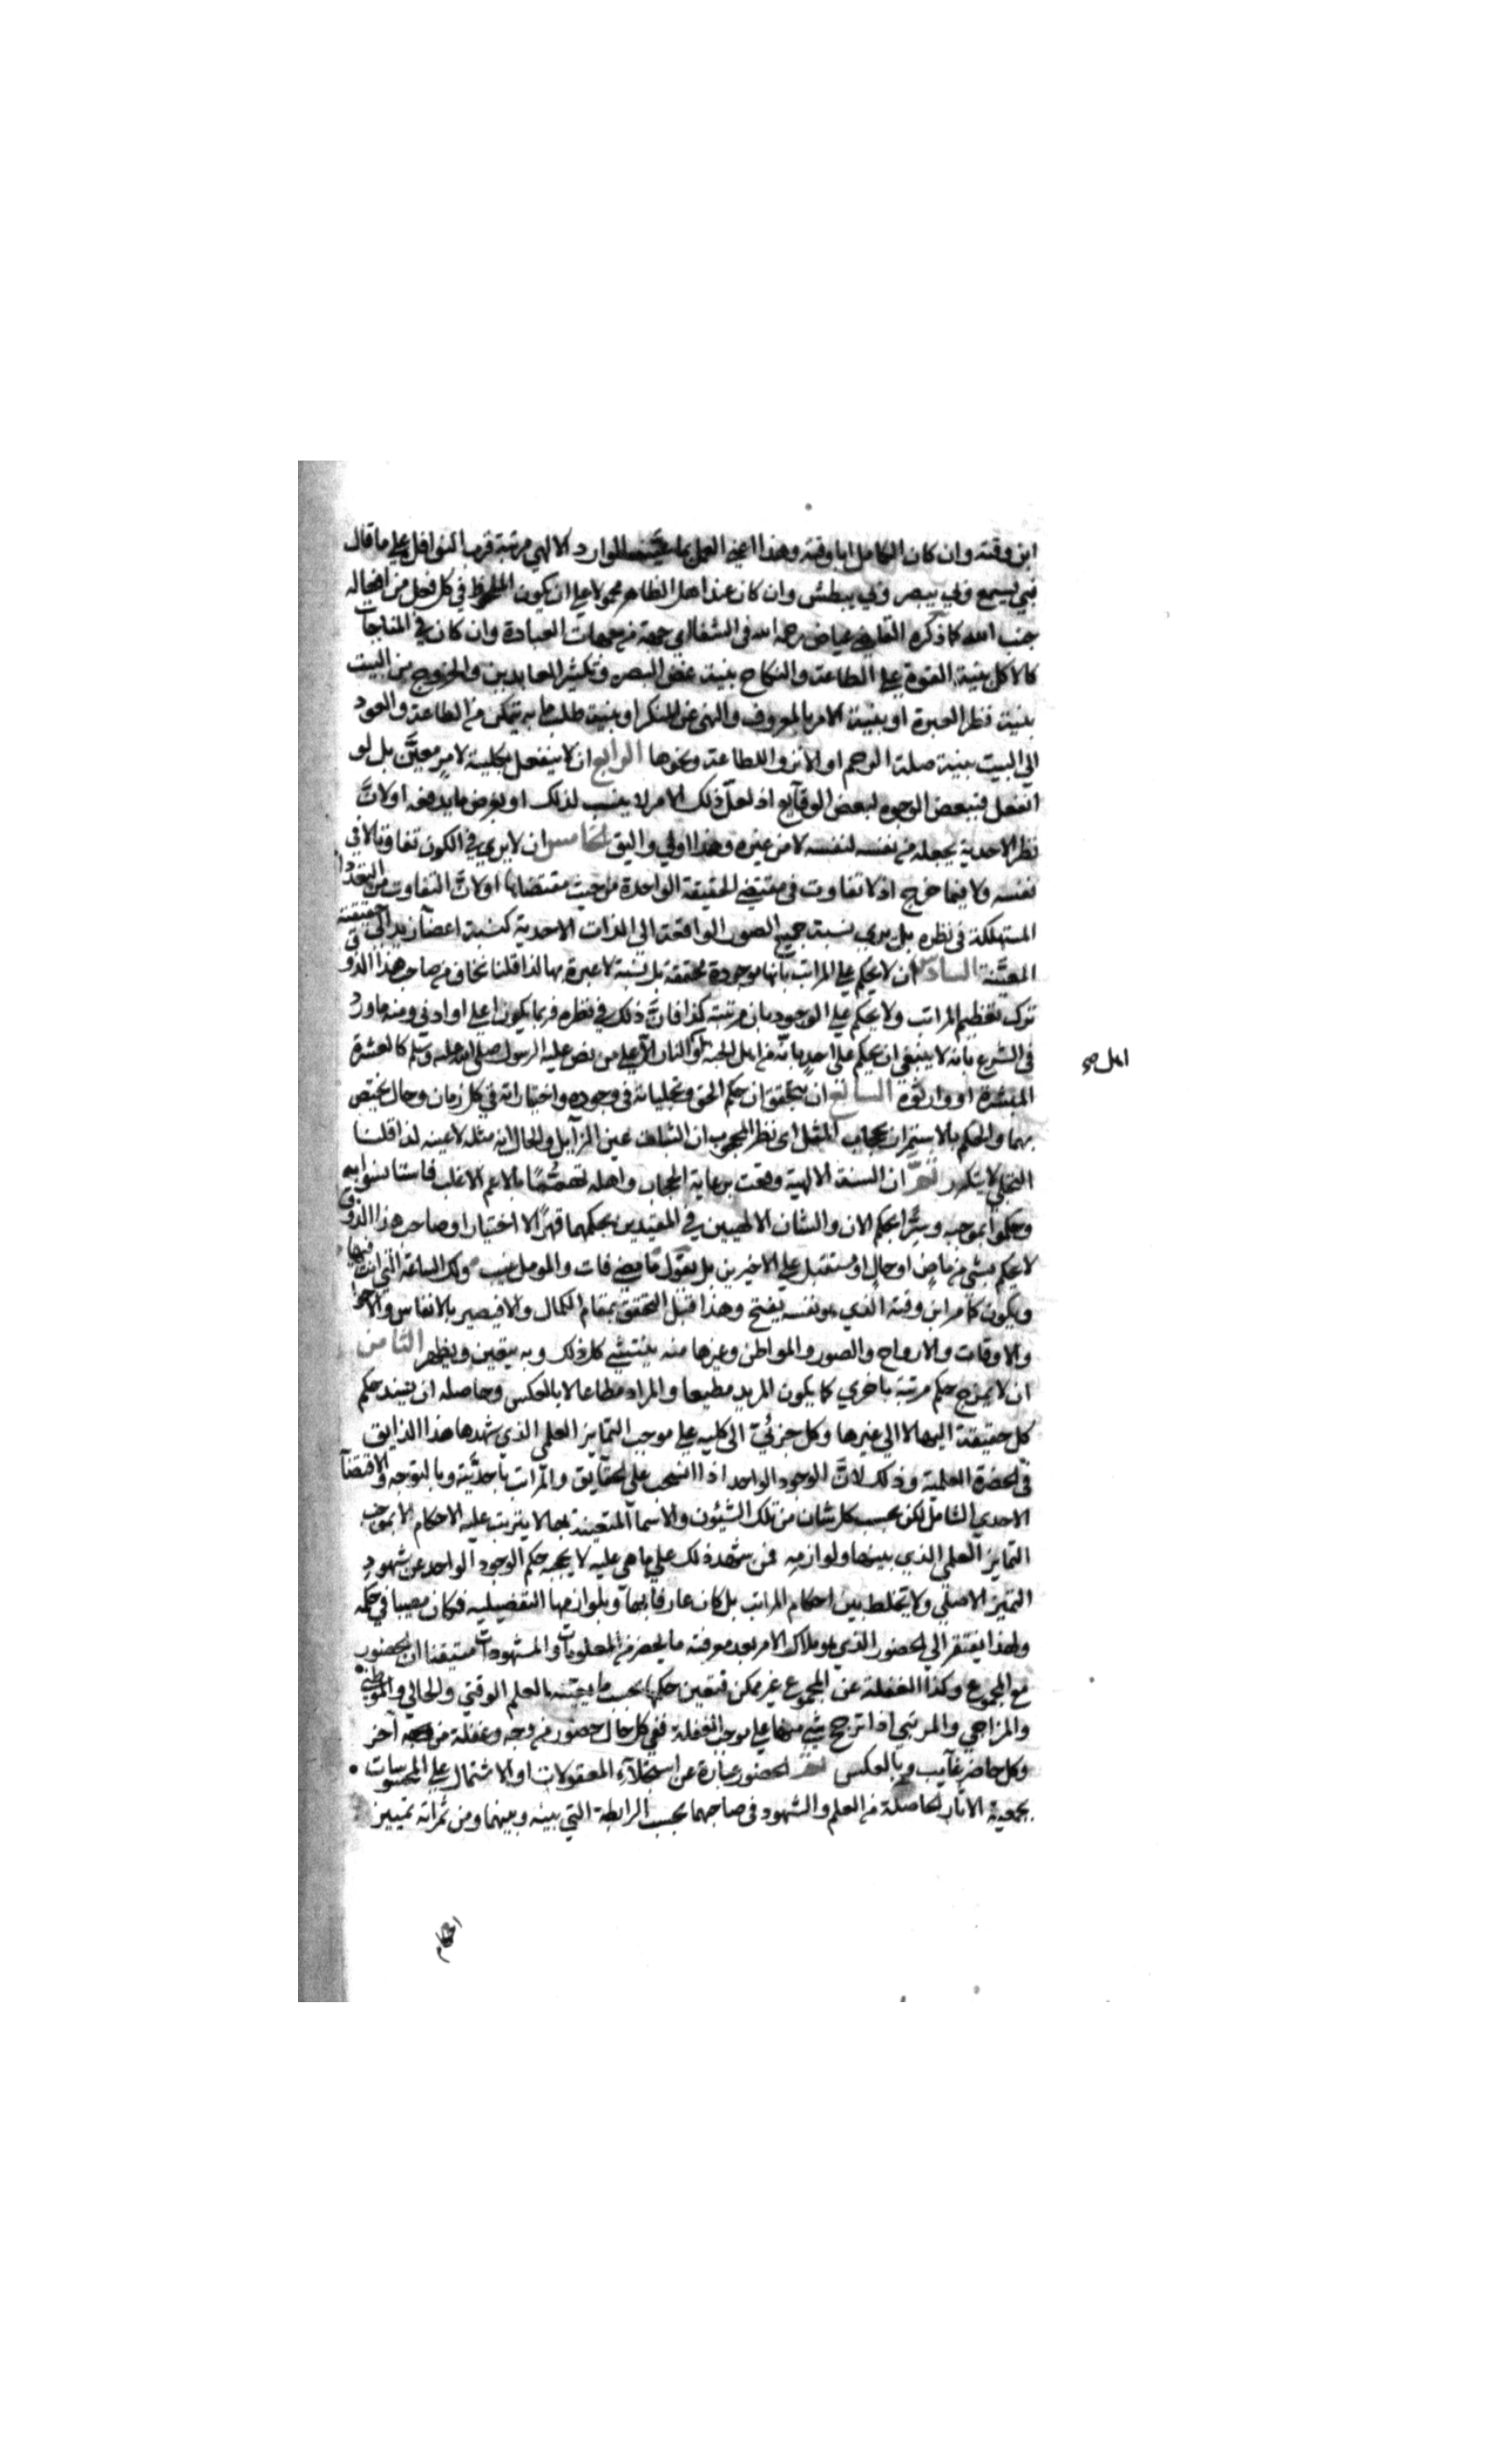 ابن وقته وان كان الكامل ابا وقته وهذا اعني العمل بما عينه الوارد الالهي مرتبة قرب النوافل على ما قال
فبي يسمع وبي يبصر وبي يبطش وان كان عند اهل الظاهر محمولا على ان يكون الملحوظ في كل فعل من افعاله
جنب الله كما ذكره القاضي عياض رحمه الله في الشفا اي جهة من جهات العبادة وان كان في المباحات
كالاكل بنية القوة على الطاعة والنكاح بنية غض البصر وتكثير العابدين والخروج من البيت
بنية نظر العبرة او بنية الامر بالمعروف والنهي عن المنكر او بنية طلب ما به يتمكن من الطاعة والعود
الي البيت بنية صلة الرحم او الانزوا للطاعة ونحوها الرابع ان لا ينفعل بكليته لامر معين بل لو
انفعل فببعض الوجوه لبعض الوقايع اذ لعل ذلك الامر لا ينسب لذلك او يعرض ما يدفعه او لان
نظر الاحدية يجعله من نفسه لنفسه لا من غيره وهذا اولي واليق الخامس ان لا يري في الكون تفاوتا لا في
نفسه ولا فيما خرج اذ لا تفاوت في مقتضي الحقيقة الواحدة من حيث مقتضاها او لان التفاوت من التعدد
المستهلكة في نظره بل يري نسبة جميع الصور الواقعة الى الذات الاحدية كنسبة اعضآ زيد الى حقيقته
المعينة السادس ان لا يحكم علي المراتب بانها موجودة محققة بل نسبة لا عبرة بها لذا قلنا نخاف من صاحب هذا الذوق
ترك تعظيم المراتب ولا يحكم علي الوجود بان مرتبته كذا فان ذلك في نظره فربما يكون اعلي او ادنى ومنه ما ورد
في الشرع بانه لا ينبغي ان يحكم على احد بانه من اهل الجنة او النار الا علي من نص عليه الرسول صلى الله عليه وسلم كالعشرة
اهل صح
المبشرة او وارثوه السابع ان يتحقق ان حكم الحق وتجلياته في وجوده واختياراته في كل زمان وحال يختص
بهما والحكم بالاستمرار بحجاب المثل اى نظر المحجوب ان الثابت عين الزايل والحال انه مثله لا عينه لذا قلنا
التجلي لا يتكرر ثم ان السنة الالهية وقعت برعاية الحجاب واهله تهممًا بالاعم الاغلب فاستانسوا به
وحكموا بموجبه وسرا بحكم الان والشان الالهيين في المقيدين بحكمهما قهرًا لا اختيارا وصاحب هذا الذوق
لا يحكم بشي من ماض او حال او مستقبل علي الاخيرين بل يقول ما مضي فات والمومل غيب ولك الساعة التي انت فيها
ويكون كامر ابن وقته الذي هو نفسه يفتح وهذا قبل التحقق بمقام الكمال والا فيصير بالانفاس والاحوال
والاوقات والارواح والصور والمواطن وغيرها منه ينتشي كل ذلك وبه يتعين ويظهر الثامن
ان لا يمزج حكم مرتبة باخري كما يكون المريد مطيعا والمراد مطاعا لا بالعكس وحاصله ان يسند حكم
كل حقيقة اليها لا الي غيرها وكل جزئي الى كليه علي موجب التمايز العلمي الذي شهدها هذا الذايق
في الحضرة العلمية وذلك لان الوجود الواحد اذا انسحب على الحقايق والمراتب باحديته وبالتوجه والاقتضآ
الاحدي الشامل لكن بحسب كل شان من تلك الشيئون والاسمآ المتعينة بها لا يترتب عليه الاحكام الا بموجب
التمايز العلمي الذي بينها ولوازمه فمن شهد ذلك علي ما هي عليه لا يحجبه حكم الوجود الواحد عن شهود
التميز الاصلي ولا يخلط بين احكام المراتب بل كان عارفا بها وبلوازمها التفصيليه فكان مصيبا في حكمه
ولهذا يفتقر الي الحضور الذي هو ملاك الامر بعد معرفته ما يحضر من المعلومات والمشهودات مستيقنا ان الحضور
مع المجموع وكذا الغفلة عن المجموع غير ممكن فتعين حكمها بحسب ما يعينه العلم الوقتي والحالي والموطني
والمزاجي والمرتبي اذا ترجح شي منها علي موجب الغفلة ففي كل حال حضور من وجه وغفلة من وجه آخر
وكل حاضر غآيب وبالعكس ثم الحضور عبارة عن استجلآء المعقولات او الاشتمال علي المحسوسات
بجمعية الاثار الحاصلة من العلم والشهود في صاحبهما بحسب الرابطة التي بينه وبينهما ومن ثمراته تمييز
احكام